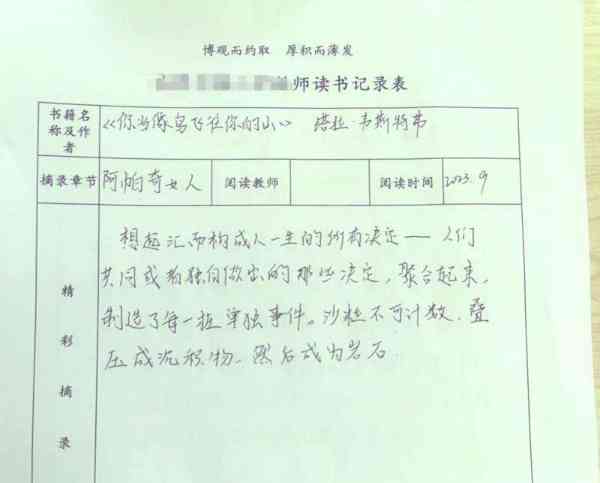 博观而约取 厚积而薄发
师读书记录表
书籍名称及作者 《你当像鸟飞往你的山》 塔拉·韦斯特弗
摘录章节 阿帕奇女人 阅读教师 阅读时间 2023.9
精彩摘录
想起汇而构成人一生的所有决定——人们
共同或者独自做出的那些决定,聚合起来,
制造了每一桩单独事件。沙粒不可计数,叠
压成沉积物,然后成为岩石